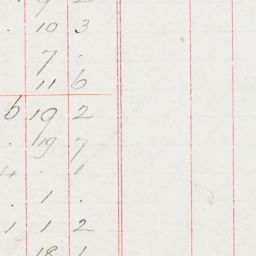 . 9 2
. 10 3
7 .
11 6
6 19 2
. 19 7
4 . 1
. 1 .
1 1 2
18 1